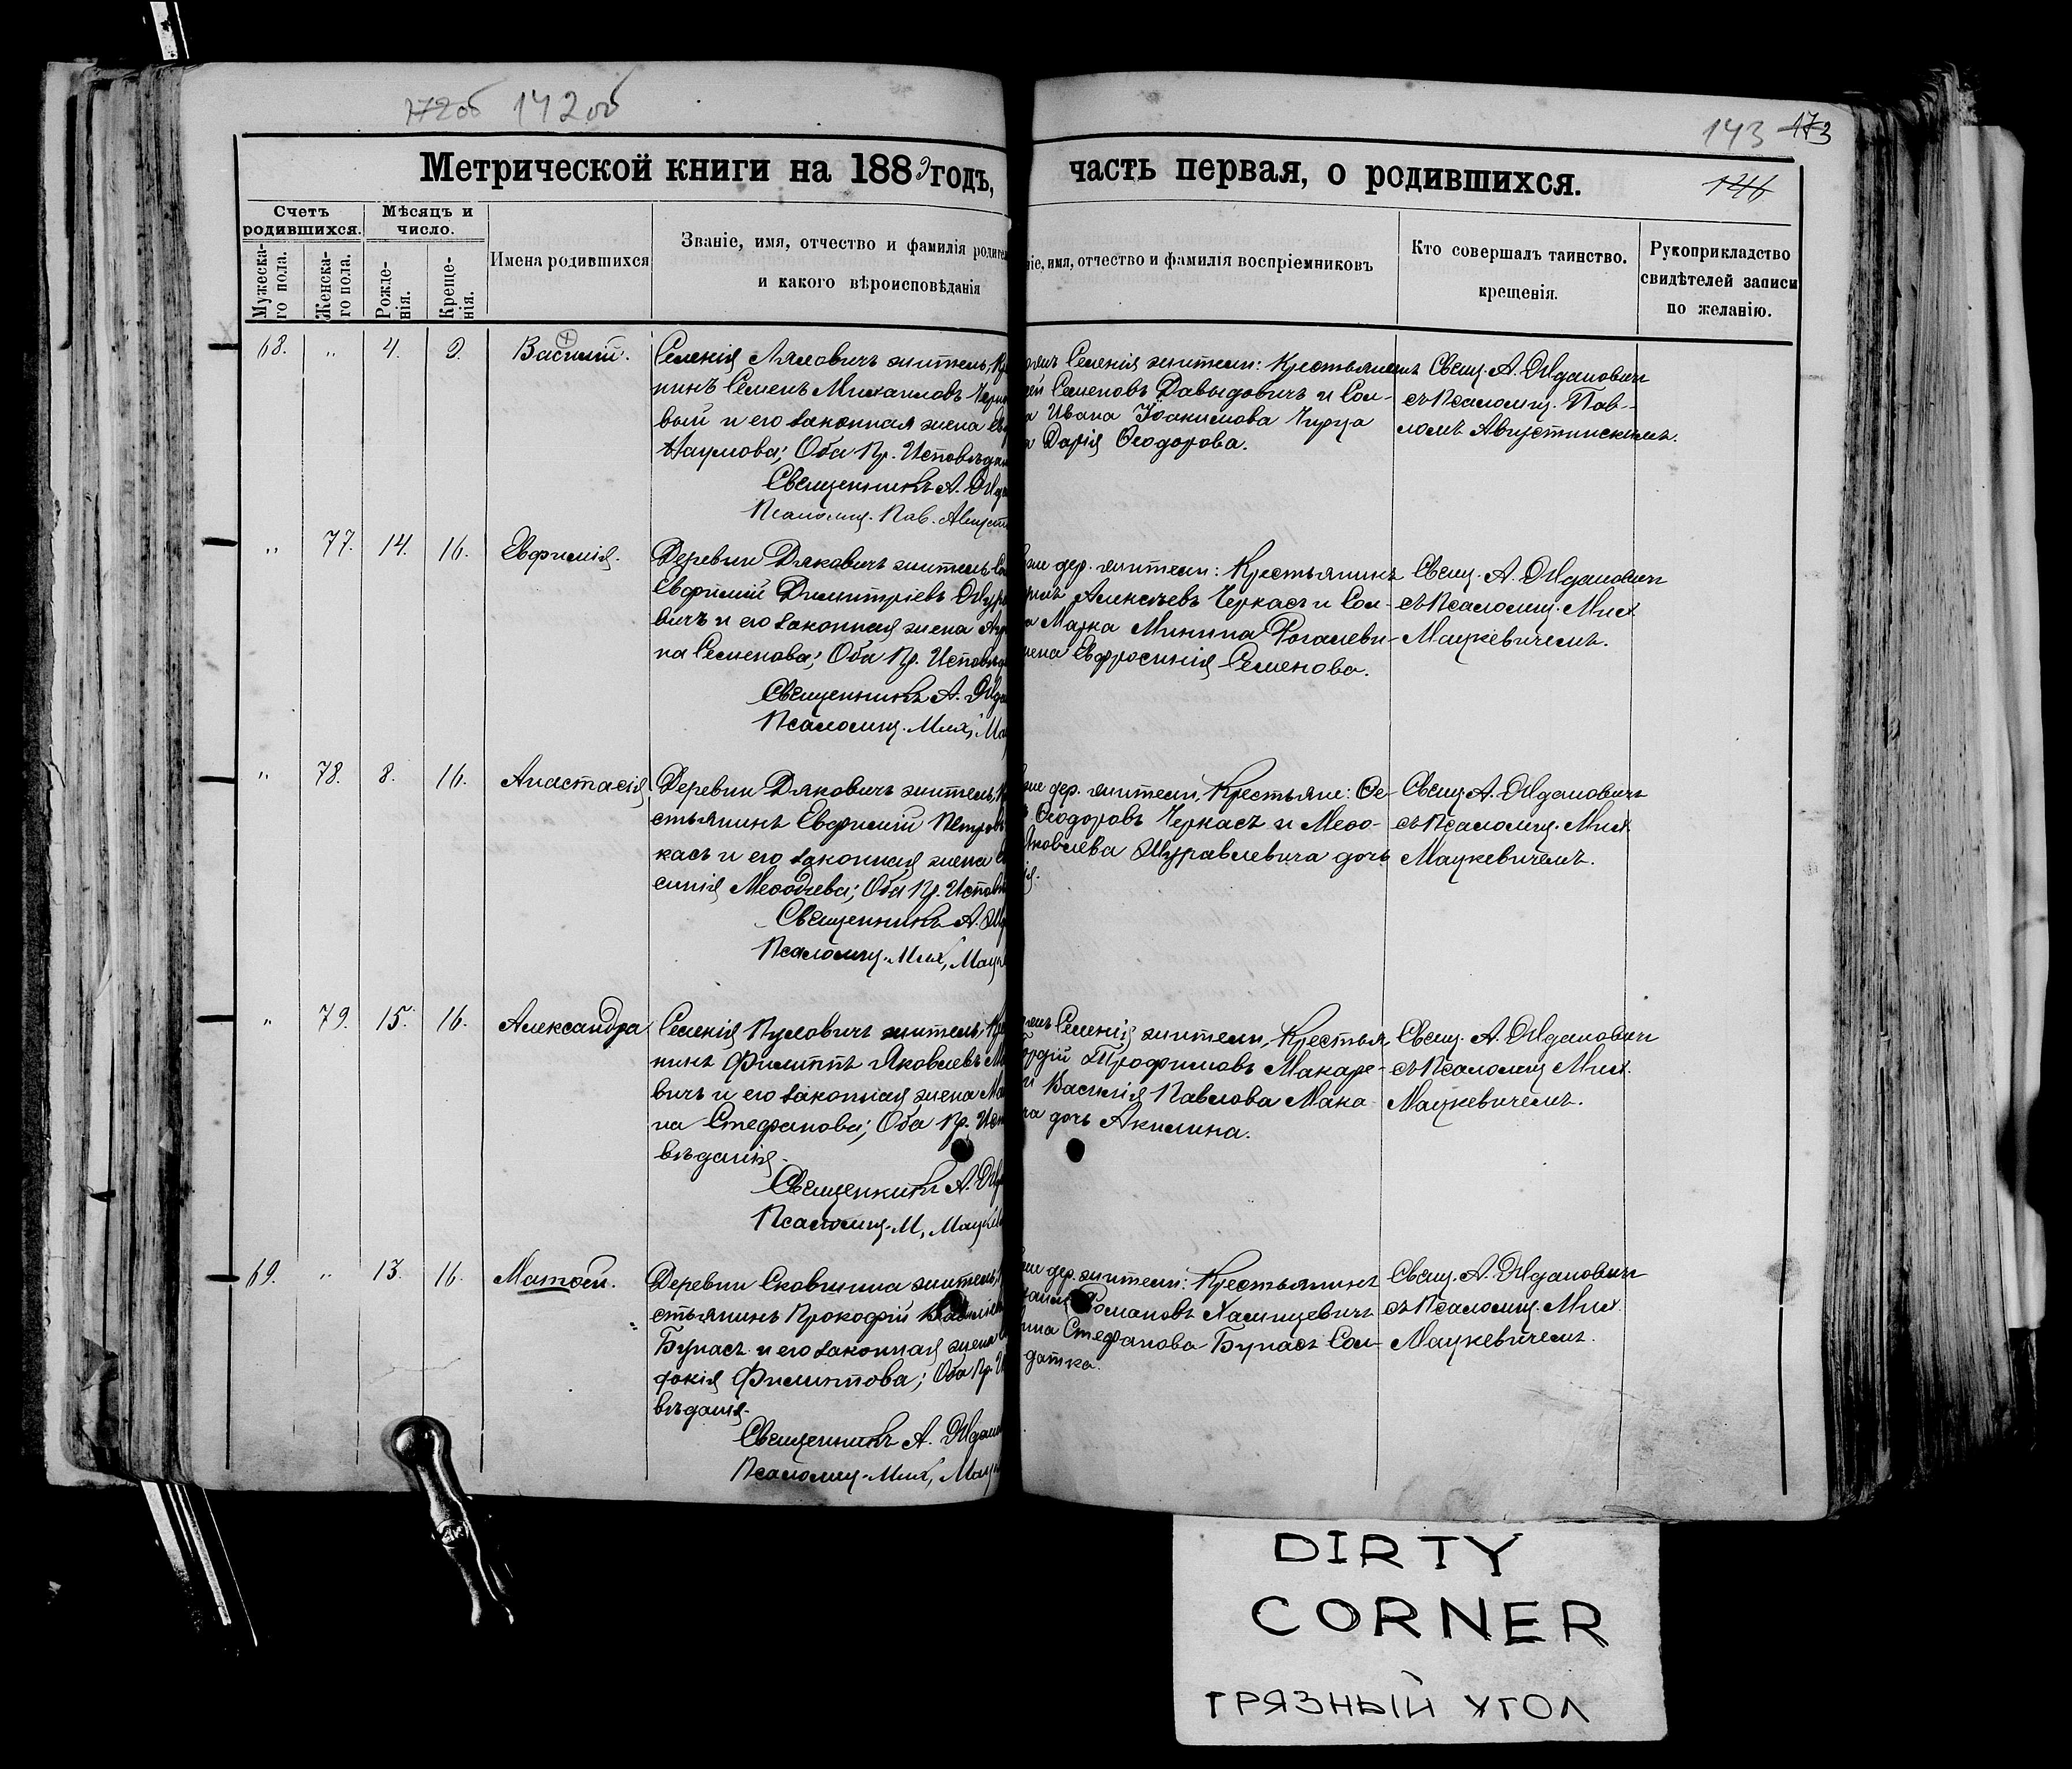 172об 142об
143 173
146
Метрической книги на 1889 годъ,
часть первая, о родившихся.
Счетъ родившихся.
Мѣсяцъ и число.
Мужеска-
го пола.
Женска-
го пола.
Рожде-
нія.
Креще-
нія.
Имена родившихся
Званіе, имя, отчество и фамилія родител
и какого вѣроисповѣданія
ніе, имя, отчество и фамилія воспріемниковъ
Кто совершалъ таинство.
крещенія.
Рукоприкладство
свидѣтелей записи
по желанію.
68. " 4. 9. Василій.
Селенія Ляловичъ житель, Кре
нинъ Семенъ Михаиловъ
вый и его законная жена
Наумова; Оба Пр. Исповѣдан
Священникъ А.
Псаломщ. Пав. Августи
Селенія жители: Крестьянинъ
Семеновъ Давыдовичъ и Сол-
Ивана Іоакимова
Дарія Ѳеодорова.
Свящ. А. Жданович
съ Псаломщ. Пав-
ломъ Августинскимъ.
" 77. 14. 16. Евфимія.
Деревни Дяковичъ житель Сол
Евфимій Димитріевъ Жура
вичъ и его законная жена
на Семенова; Оба Пр. Исповѣд
Священникъ А. Жда
Псаломщ. Мих. Ма
дер. жители: Крестьянинъ
Алексѣевъ Черкасъ и Сол-
Марка Минина Рогалеви-
жена Евфросинія Семенова.
Свящ. А. Жданович
съ Псаломщ. Мих
Мацкевичемъ.
" 78. 8. 16. Анастасія
Деревни Дяковичъ житель, Кр
стьянинъ Евфимій Петровъ
касъ и его законная жена
синія Меѳодіева; Оба Пр. Исповѣ
Священникъ А. Ж
Псаломщ. Мих, Мацк
дер. жители, Крестьяне: Ѳе-
Ѳеодоровъ Черкасъ и Меѳо-
Яковлева Журавлевича дочь
Свящ А. Жданович
съ Псаломщ. Мих
Мацкевичемъ.
" 79. 15. 16. Александра
Селенія Пуховичъ житель, Кр
нинъ Филиппъ Яковлевъ М
вичъ и его законная жена Ма
на Стефанова; Оба Пр. Испо
вѣданія.
Священникъ А. Ж
Псаломщ. М, Мацке
Селенія жители, Крестья
Трофимовъ Макаре-
Василія Павлова Мака
дочь Акилина.
Свящ. А. Жданович
съ Псаломщ Мих.
Мацкевичемъ.
69. " 13. 16. Матѳей.
Деревни Сковшина житель,
стьянинъ Прокофій Василіев
Бунасъ и его законная жена
докія Филиппова; Оба Пр. И
вѣданія.
Священникъ А. Ждан
Псаломщ. Мих, Мацк
дер. жители: Крестьянинъ
Романовъ Халицевичъ
Стефанова Бунасъ Сол-
датка.
Свящ. А. Жданович
съ Псаломщ. Мих
Мацкевичемъ.
DIRTY
CORNER
ГРЯЗНЫЙ УГОЛ